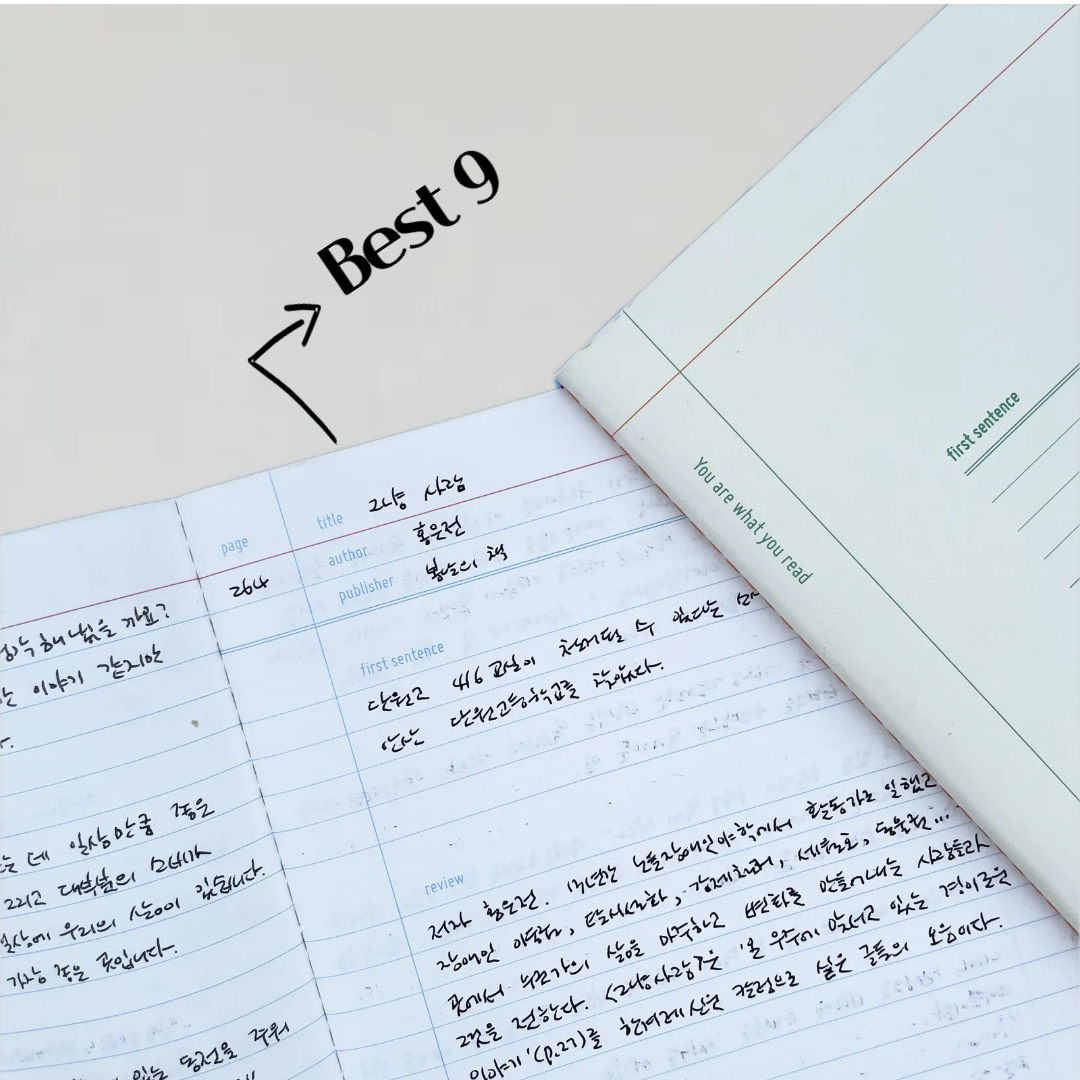 Best 9
first sentence
You are what you read
page
264
title 그냥 사람
author 홍은전
publisher 봄날의 책
first sentence
단원고 416 교실이 철거될 수 있다는
안산 단원고등학교를 찾았다.
review
저자 홍은전. 13년간 노들장애인야학에서 활동가로 일했고
장애인 이동권, 탈시설화, 강제철거, 세월호, 동물권...
곳에서 누군가의 삶을 마주하고 변화를 만들어내는 사람들과
그것을 전한다. <그냥 사람>은 '온 우주에 맞서고 있는 경이로운
이야기'(p.27)를 한겨레신문 칼럼으로 실은 글들의 모음이다.
해냈을 까요?
이야기 같지만
데 일상만큼 좋은
그리고 대부분의 소비가
일상에 우리의 삶이 있습니다.
가장 좋은 곳입니다.
있는 동전을 주워